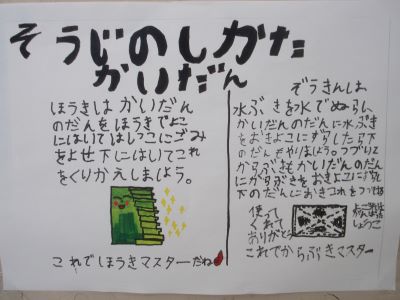 そうじのしかた
かいだん
ほうきは かいだん
のだんをほうきでよこ
にはいてはしっこにごみ
をよせ下にはいてこれ
をくりかえしまよう。
これでほうきマスターだね
ぞうきんは
水ぶきを水でぬらし、
かいだんのだんに水ぶき
をおきよこにずらしたら下
のだんをやりましょう。
からぶきもかいだんのだん
にからぶきをおきよこにずらし
下のだんにおきこれをつづける
使って
くれて
ありがとう
しょうこ
これでからぶきマスター